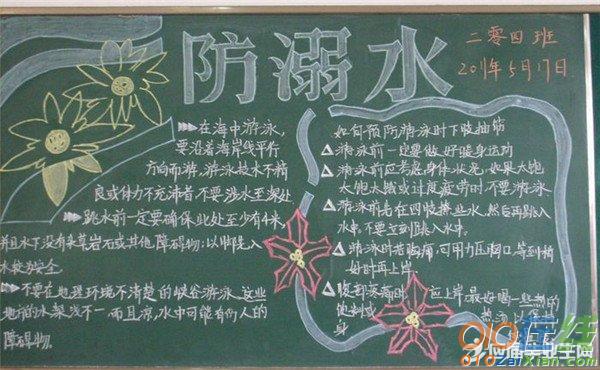 防溺水
二零四班
2011年5月17日
在海中游泳,
要沿着海岸线平行
方向而游,游泳技术不精
良或体力不充沛者,不要涉水至深处
跳水前一定要确保此处至少有4米,
并且水下没有杂草岩石或其他障碍物;以脚先入
水较为安全
不要在地理环境不清楚的峡谷游泳,这些
地方的水深浅不一,而且凉,水中可能有伤人的
障碍物.
如何预防游泳时下肢抽筋
游泳前一定要做好暖身运动
游泳前应考虑身体状况,如果太饱
太饿或过度疲劳时,不要游泳
游泳前先在四肢撩些水,然后再跳入
水中.不要立刻跳入水中.
游泳时若胸痛,可用力压胸口,等到稍
好时再上岸.
腹部疼痛时,应上岸,最好喝一些热的
身
在线
910ZaiXian.com